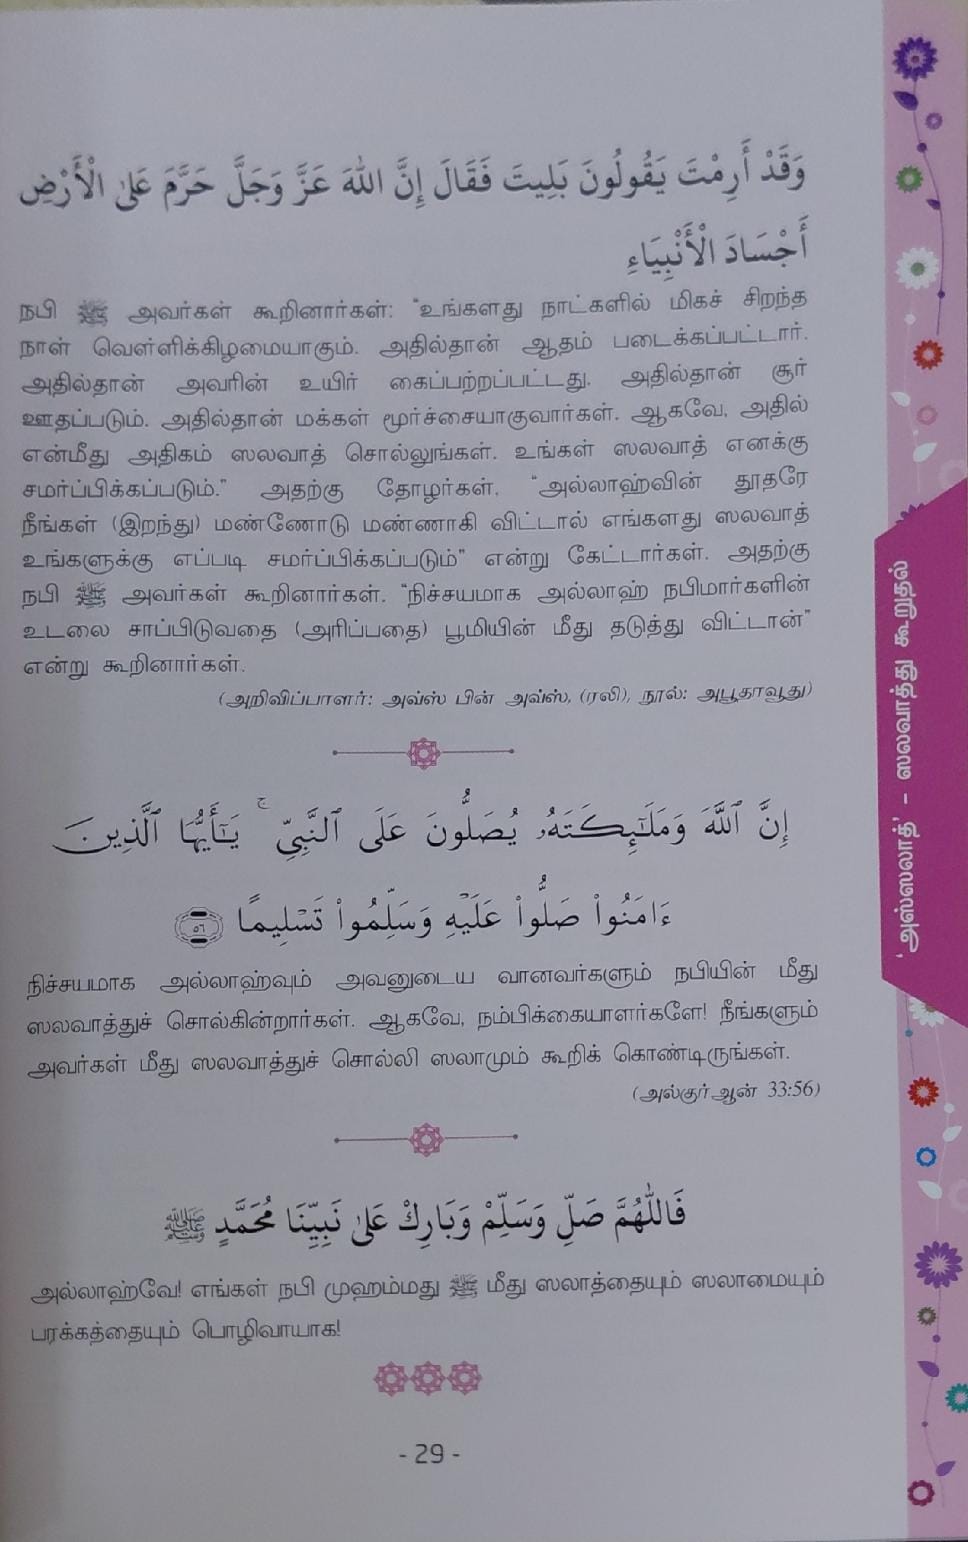 وَقَدْ أَرِمْتَ يَقُولُونَ بَلِيتَ فَقَالَ إِنَّ اللهَ عَزَّ وَجَلَّ حَرَّمَ عَلَى الْأَرْضِ
أَجْسَادَ الْأَنْبِيَاءِ
நபி ﷺ அவர்கள் கூறினார்கள்: “உங்களது நாட்களில் மிகச் சிறந்த
நாள் வெள்ளிக்கிழமையாகும். அதில்தான் ஆதம் படைக்கப்பட்டார்.
அதில்தான் அவரின் உயிர் கைப்பற்றப்பட்டது. அதில்தான் சூர்
ஊதப்படும். அதில்தான் மக்கள் மூர்ச்சையாகுவார்கள். ஆகவே, அதில்
என்மீது அதிகம் ஸலவாத் சொல்லுங்கள். உங்கள் ஸலவாத் எனக்கு
சமர்ப்பிக்கப்படும்.” அதற்கு தோழர்கள், “அல்லாஹ்வின் தூதரே
நீங்கள் (இறந்து) மண்ணோடு மண்ணாகி விட்டால் எங்களது ஸலவாத்
உங்களுக்கு எப்படி சமர்ப்பிக்கப்படும்” என்று கேட்டார்கள். அதற்கு
நபி ﷺ அவர்கள் கூறினார்கள். “நிச்சயமாக அல்லாஹ் நபிமார்களின்
உடலை சாப்பிடுவதை (அரிப்பதை) பூமியின் மீது தடுத்து விட்டான்”
என்று கூறினார்கள்.
(அறிவிப்பாளர்: அவ்ஸ் பின் அவ்ஸ், (ரலி), நூல்: அபூதாவூது)
إِنَّ ٱللَّهَ وَمَلَٰٓئِكَتَهُۥ يُصَلُّونَ عَلَى ٱلنَّبِيِّ ۚ يَٰٓأَيُّهَا ٱلَّذِينَ
ءَامَنُوا۟ صَلُّوا۟ عَلَيْهِ وَسَلِّمُوا۟ تَسْلِيمًا ٥٦
நிச்சயமாக அல்லாஹ்வும் அவனுடைய வானவர்களும் நபியின் மீது
ஸலவாத்துச் சொல்கின்றார்கள். ஆகவே, நம்பிக்கையாளர்களே! நீங்களும்
அவர்கள் மீது ஸலவாத்துச் சொல்லி ஸலாமும் கூறிக் கொண்டிருங்கள்.
(அல்குர்ஆன் 33:56)
فَاللّٰهُمَّ صَلِّ وَسَلِّمْ وَبَارِكْ عَلَى نَبِيِّنَا مُحَمَّدٍ ﷺ
அல்லாஹ்வே! எங்கள் நபி முஹம்மது ﷺ மீது ஸலாத்தையும் ஸலாமையும்
பரக்கத்தையும் பொழிவாயாக!
- 29 -
‘அஸ்ஸலாத்’ - ஸலவாத்து கூறுதல்